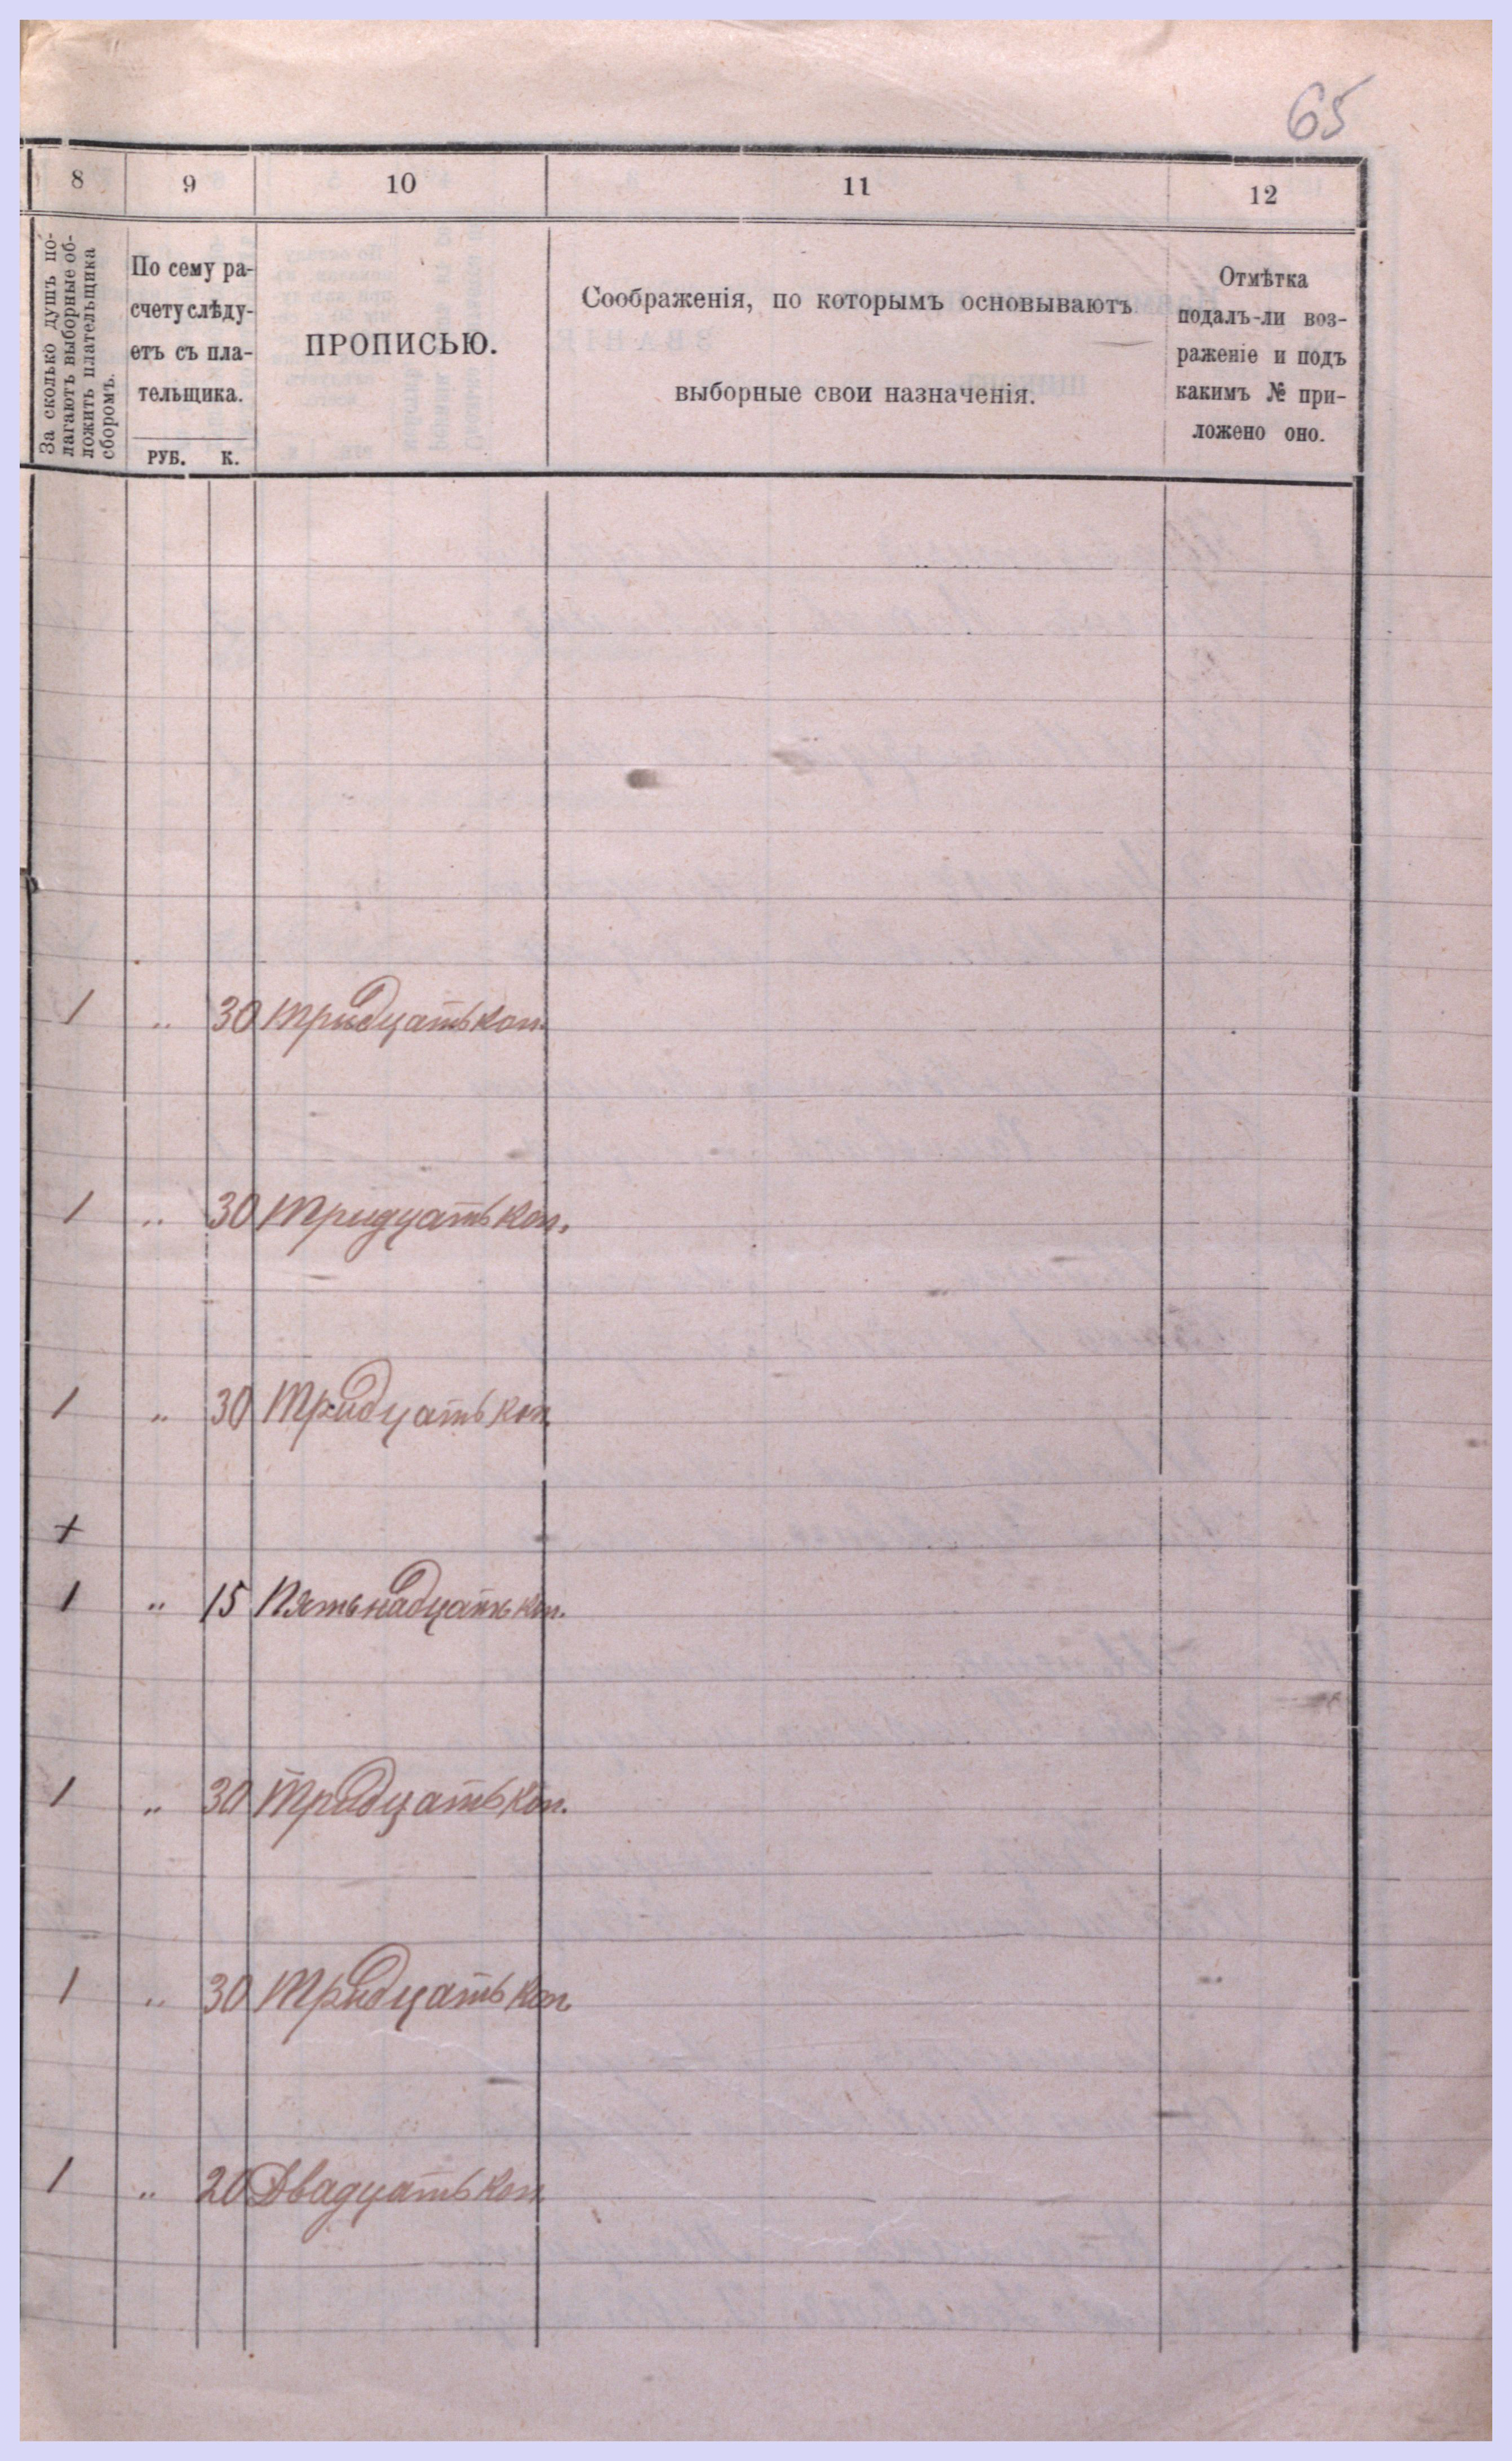 65
8 9 10 11 12
За сколько душъ по-
лагаютъ выборные об-
ложить плательщика
сборомъ.
По сему ра-
счету слѣду-
етъ съ пла-
тельщика.
РУБ. К.
ПРОПИСЬЮ.
Соображенія, по которымъ основываютъ
выборные свои назначенія.
Отмѣтка
подалъ-ли воз-
раженіе и подъ
какимъ № при-
ложено оно.
1 " 30 Тридцать коп.
1 " 30 Тридцать коп.
1 " 30 Тридцать коп
+
1 " 15 Пятьнадцать коп.
1 " 30 Тридцать коп.
1 " 30 Тридцать коп
1 " 20 Двадцать коп